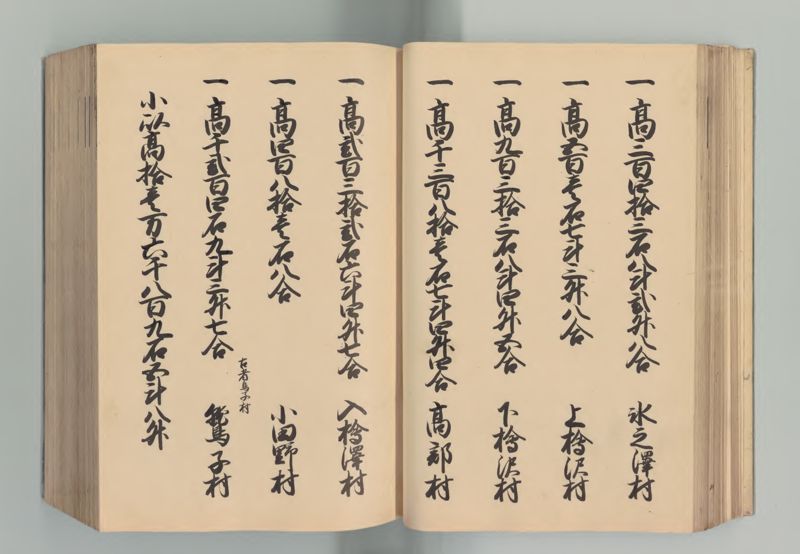 一 高三百四拾三石八斗弐升八合 氷之澤村
一 高五百壱石七斗三升八合 上檜沢村
一 高九百三拾三石八斗四升五合 下檜沢村
一 高千三百八拾壱石七斗四升四合 高部村
一 高弐百三拾弐石六斗四升七合 入檜澤村
一 高四百八拾壱石八合 小田野村
古者鳥子村
一 高千弐百四石九斗三升七合 鷲子村
小以高拾壱万六千八百九石五斗八升